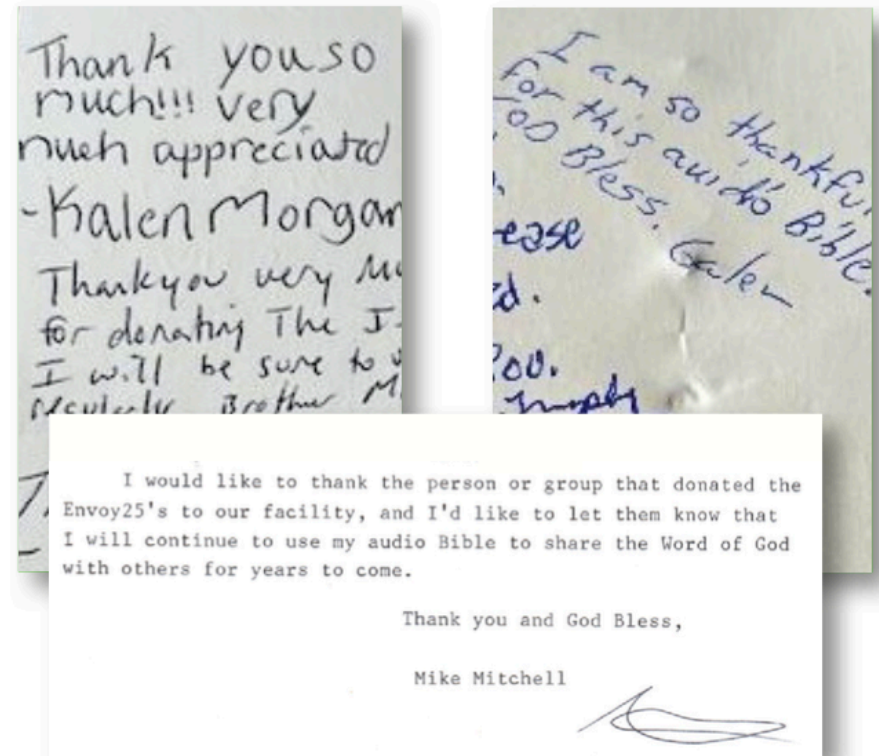 Thank you so
much!!! very
much appreciated
-Kalen Morgan
Thankyou very
for donating The
I will be sure to
Brother
I am so thankful
for this audio Bible.
GOD Bless. Galen
ease
d.
ou.
I would like to thank the person or group that donated the
Envoy25's to our facility, and I'd like to let them know that
I will continue to use my audio Bible to share the Word of God
with others for years to come.
Thank you and God Bless,
Mike Mitchell